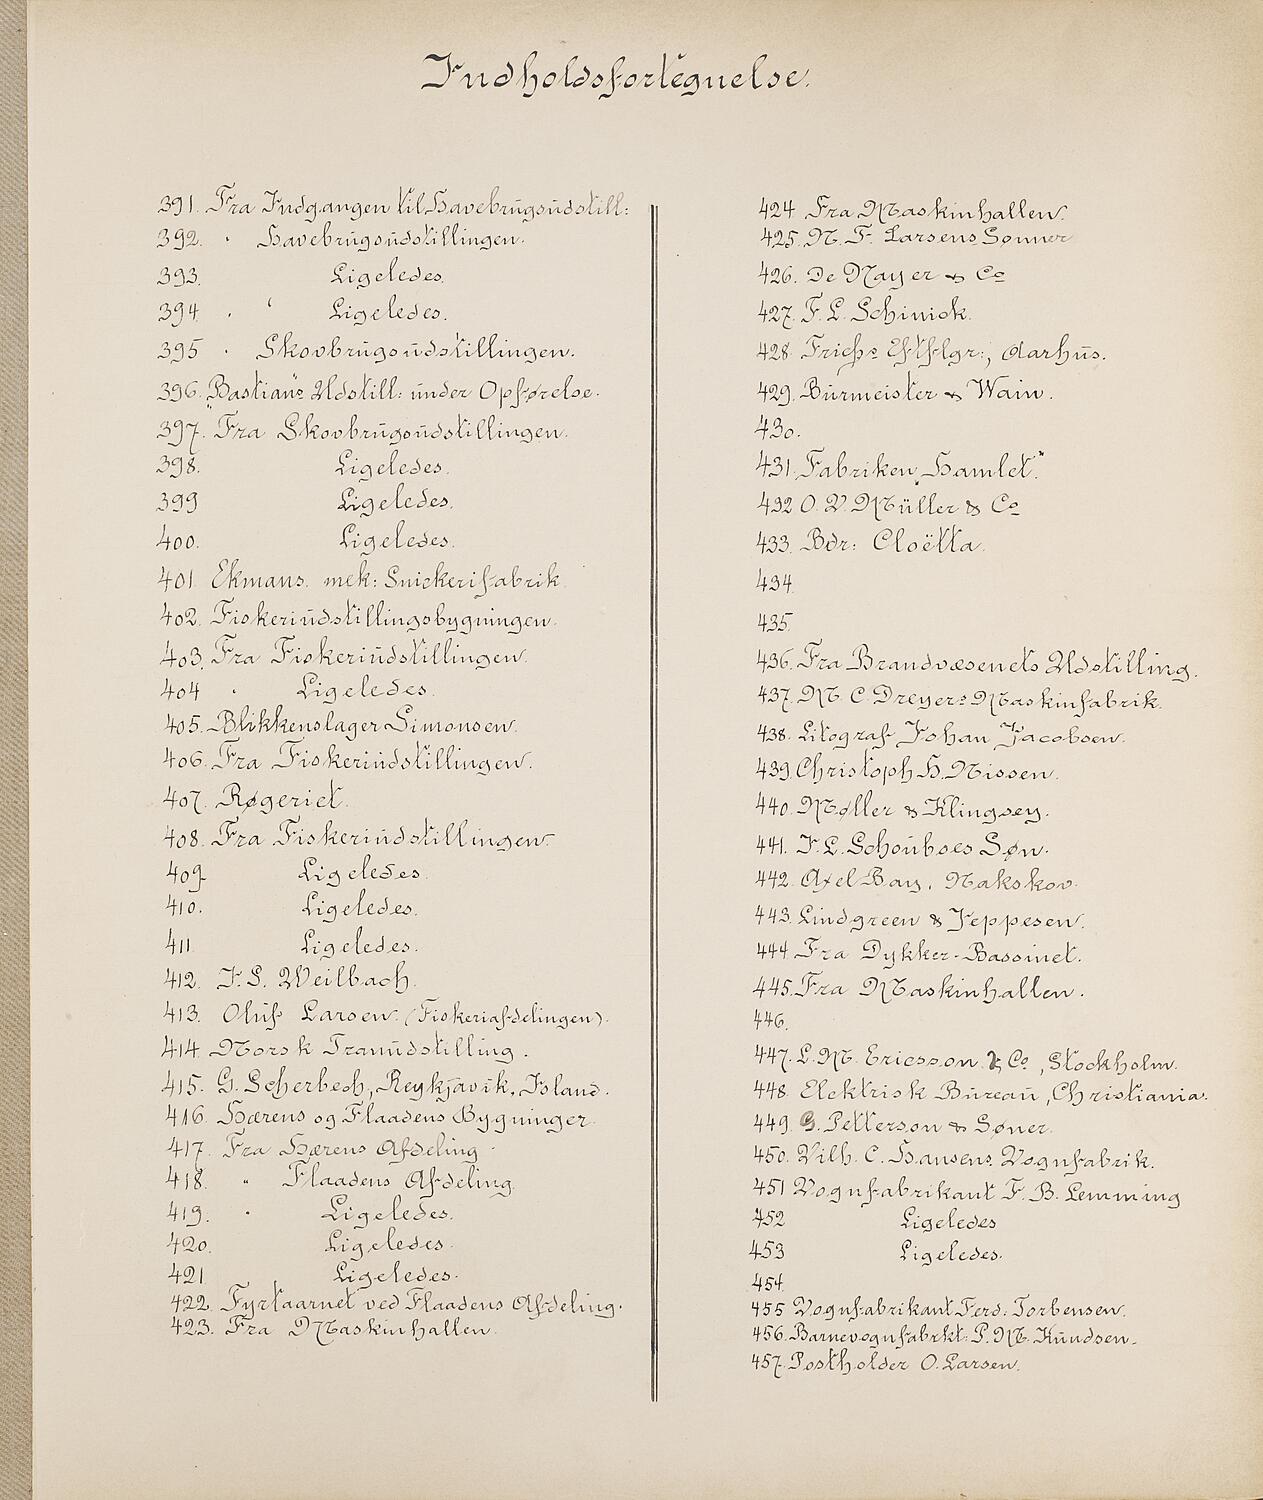 Indholdsfortegnelse.
391. Fra Indgangen til Havebrugsudstill:
392. " Havebrugsudstillingen.
393. Ligeledes.
394. " Ligeledes.
395. " Skovbrugsudstillingen.
396. "Bastian"s Udstill: under Opførelse.
397. Fra Skovbrugsudstillingen.
398. Ligeledes.
399. Ligeledes.
400. Ligeledes.
401. Ekmans mek: Snickerifabrik
402. Fiskeriudstillingsbygningen.
403. Fra Fiskeriudstillingen.
404 " Ligeledes.
405. Blikkenslager Simonsen.
406. Fra Fiskeriudstillingen.
407. Røgeriet.
408. Fra Fiskeriudstillingen.
409. Ligeledes.
410. Ligeledes.
411 Ligeledes.
412. I. S. Weilbach.
413. Oluf Larsen. (Fiskeriafdelingen).
414 Norsk Tranudstilling.
415. G. Scherbech, Reykjavik, Island.
416. Hærens og Flaadens Bygninger.
417. Fra Hærens Afdeling
418. " Flaadens Afdeling.
419. " Ligeledes.
420. Ligeledes.
421 Ligeledes.
422. Fyrtaarnet ved Flaadens Afdeling.
423. Fra Maskinhallen.
424 Fra Maskinhallen.
425. M. F. Larsens Sønner
426. De Nayer & Co
427. F. L. Schinick.
428. Frichs Eftflgr:, Aarhus.
429. Burmeister & Wain.
430.
431. Fabriken "Hamlet".
432 O. V. Müller & Co
433. Bdr: Cloëtta.
434.
435.
436. Fra Brandvæsenets Udstilling.
437. M. C. Dreyers Maskinfabrik.
438. Litograf Johan Jacobsen.
439. Christoph H. Nissen.
440. Møller & Klingsey.
441. I. L. Schouboes Søn.
442. Axel Bay, Nakskov.
443. Lindgreen & Jeppesen.
444. Fra Dykker-Bassinet.
445. Fra Maskinhallen.
446.
447. L. M. Ericsson & Co, Stockholm.
448. Elektrisk Bureau, Christiania.
449. G. Petterson & Søner.
450. Vilh. C. Hansens Vognfabrik.
451 Vognfabrikant F. B. Lemming
452 Ligeledes
453 Ligeledes.
454.
455 Vognfabrikant Ferd. Torbensen.
456. Barnevognfabrkt: P. M. Knudsen.
457. Postholder O. Larsen.